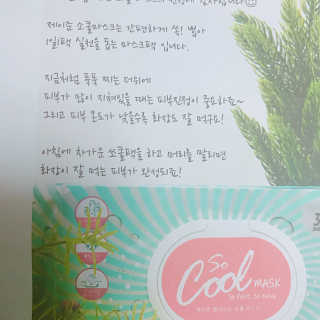 감사합니다
제이준 쏘쿨마스크는 간편하게 쏙! 뽑아
1일1팩 실천을 돕는 마스크팩 입니다.
지금처럼 푹푹 찌는 더위에
피부가 많이 지쳐있을 때는 피부진정이 중요하죠~
그리고 피부 온도가 낮을수록 화장도 잘 먹구요!
아침에 차가운 쏘쿨팩을 하고 머리를 말리면
화장이 잘 먹는 피부가 완성되죠!
So
Cool MASK
So Fast, So Easy